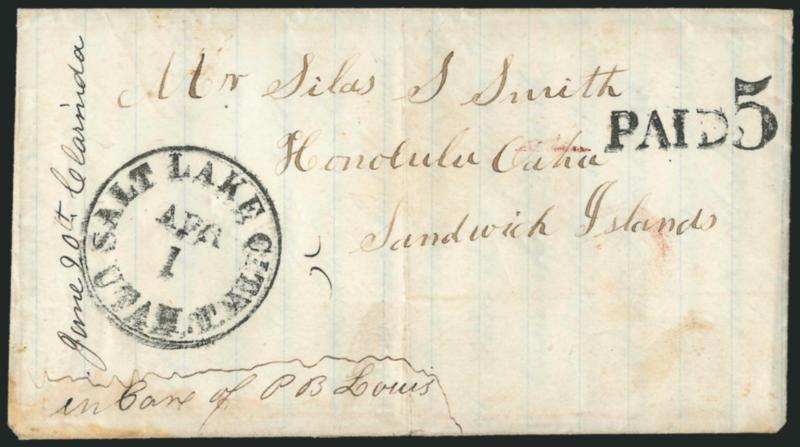 June 20th Clarinda
Mr Silas S Smith
PAID 5
Honolulu Oahu
Sandwich Islands
SALT LAKE CITY.
APR
1
UTAH.T.
in Care of P B Louis